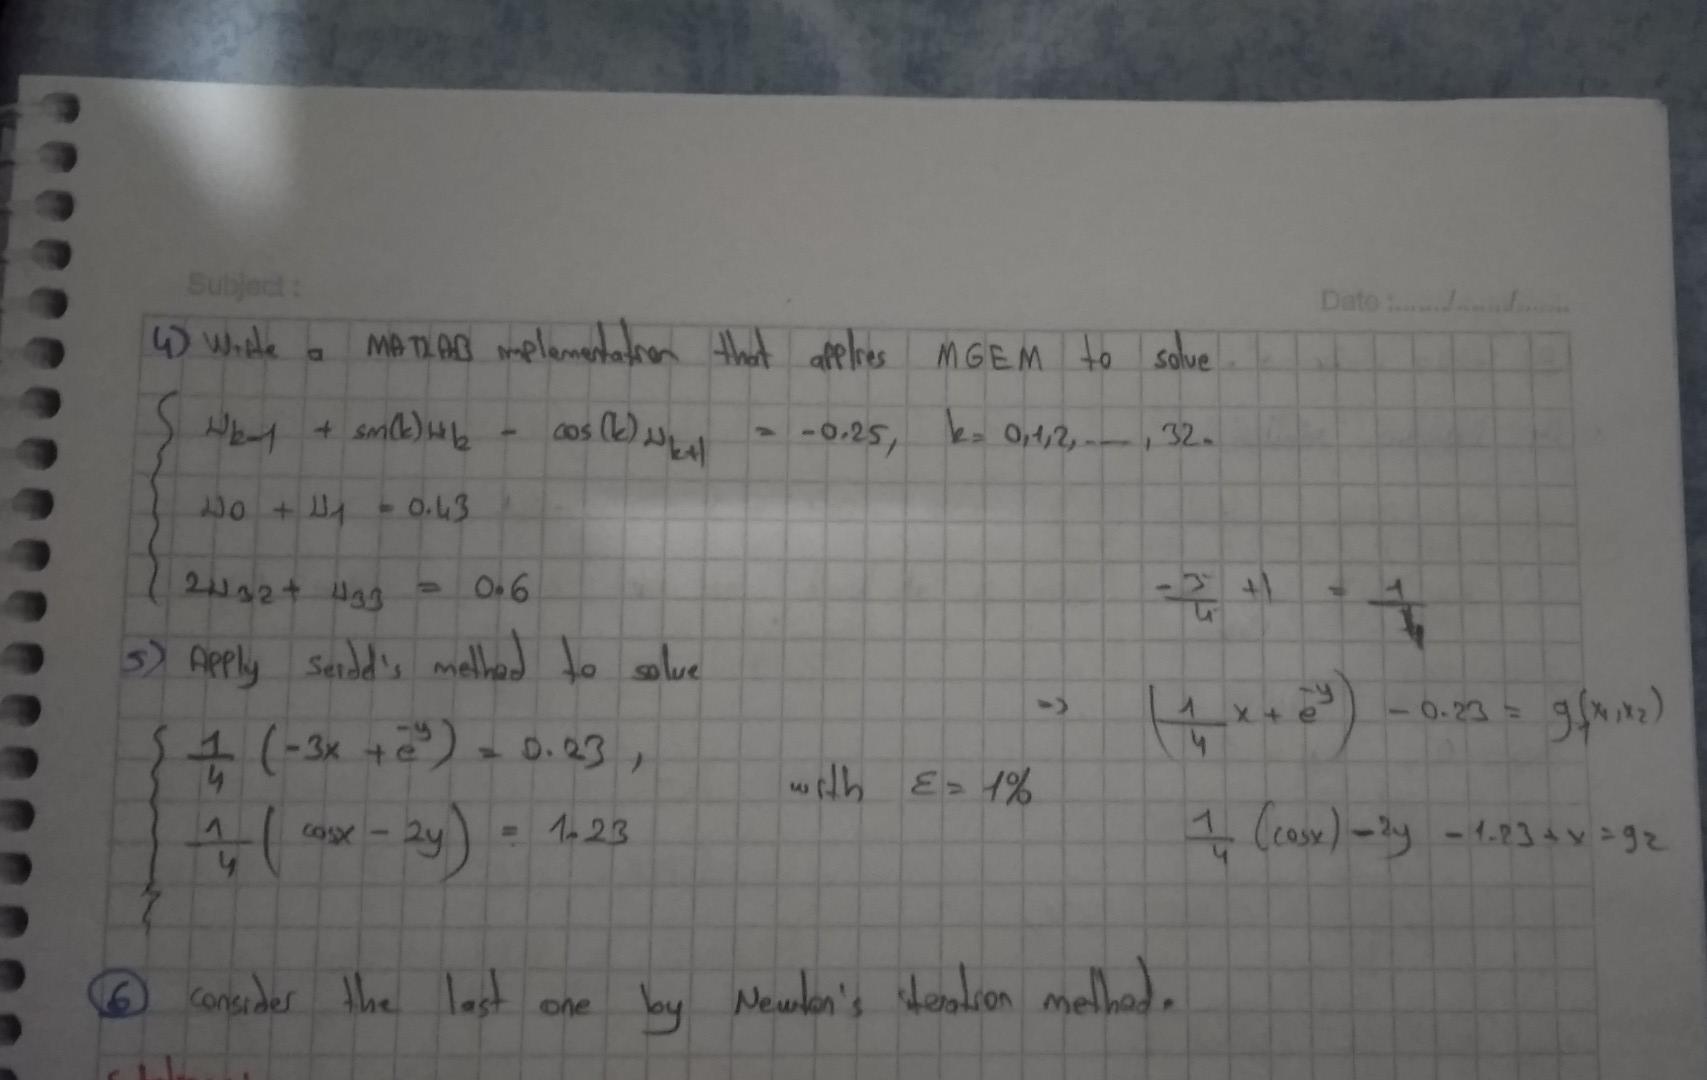 Subject :
Date :....../....../......
4) Write a MATLAB implementation that applies MGEM to solve
u_{k-1} + sin(k)u_k - cos(k)u_{k+1} = -0.25, k = 0,1,2,...,32.
u0 + u1 = 0.43
2u32 + u33 = 0.6
-3/4 + 1 = 1/4
5) Apply Seidel's method to solve
1/4 (-3x + e^{-y}) = 0.23,
with ε = 1%
1/4 (cosx - 2y) = 1.23
=> (1/4 x + e^{-y}) - 0.23 = g1(x1,x2)
1/4 (cosx) - 2y - 1.23 + x = g2
6 Consider the last one by Newton's iteration method.